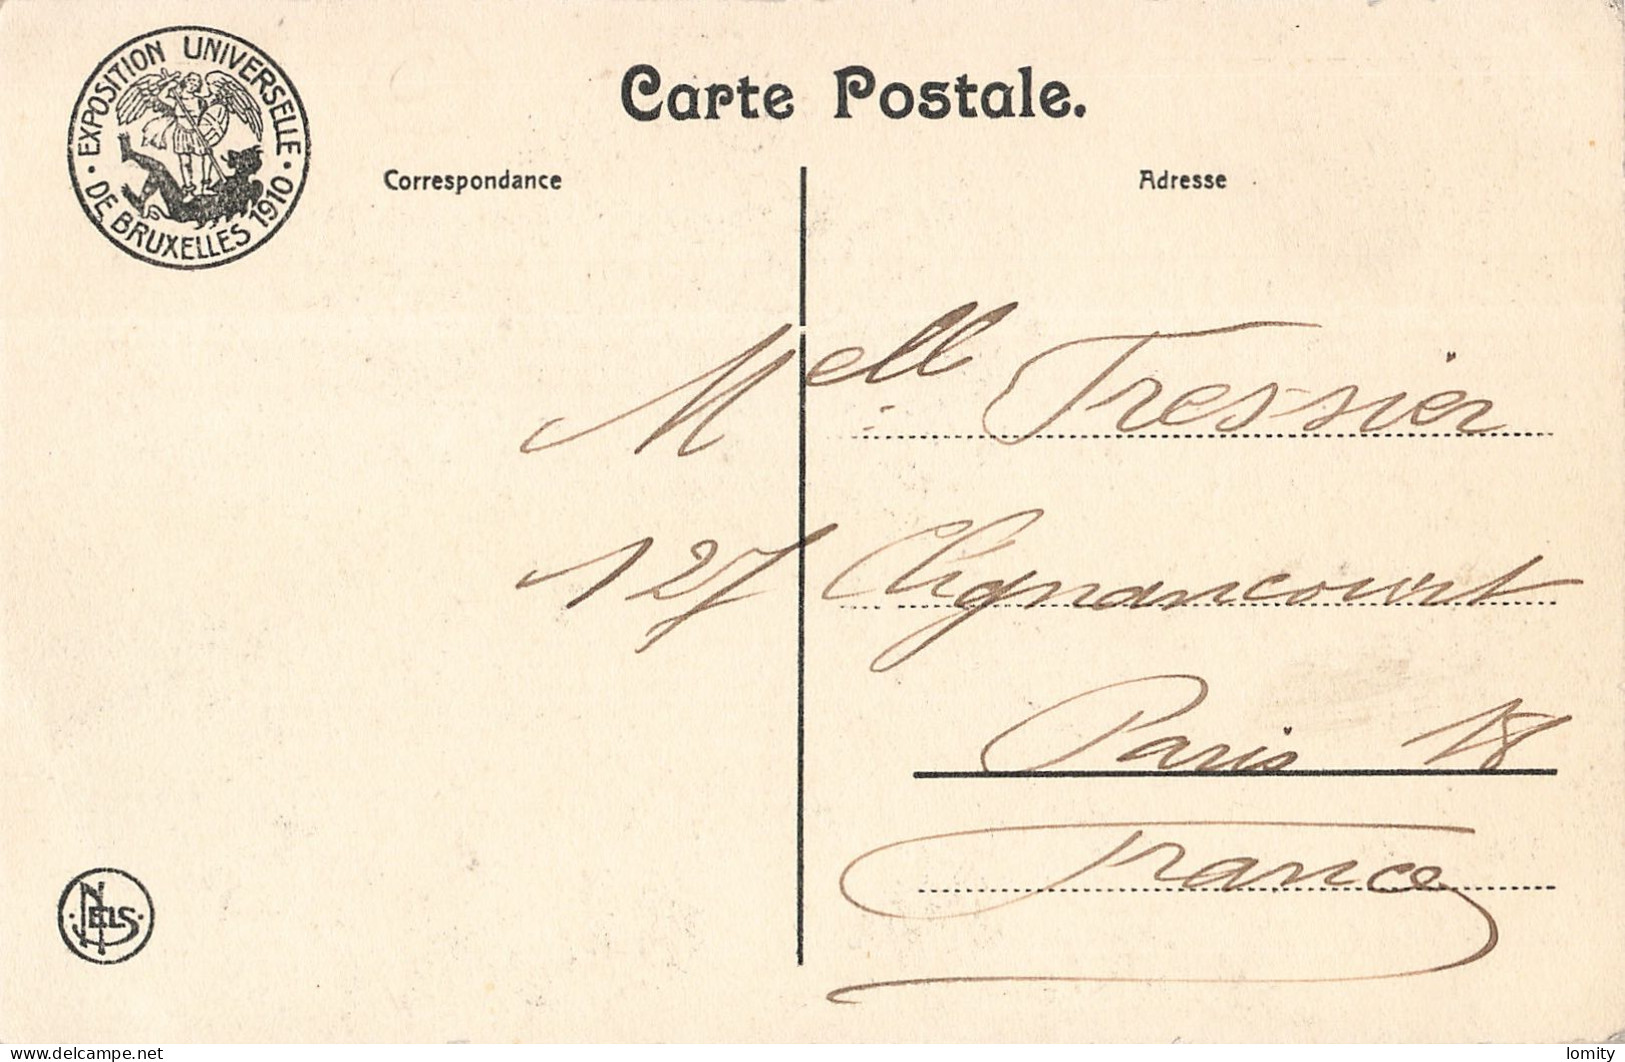 EXPOSITION UNIVERSELLE
DE BRUXELLES 1910
Carte Postale.
Correspondance
Adresse
Mell Tressier
127 Clignancourt
Paris 18
France
NELS
delcampe.net
lomity